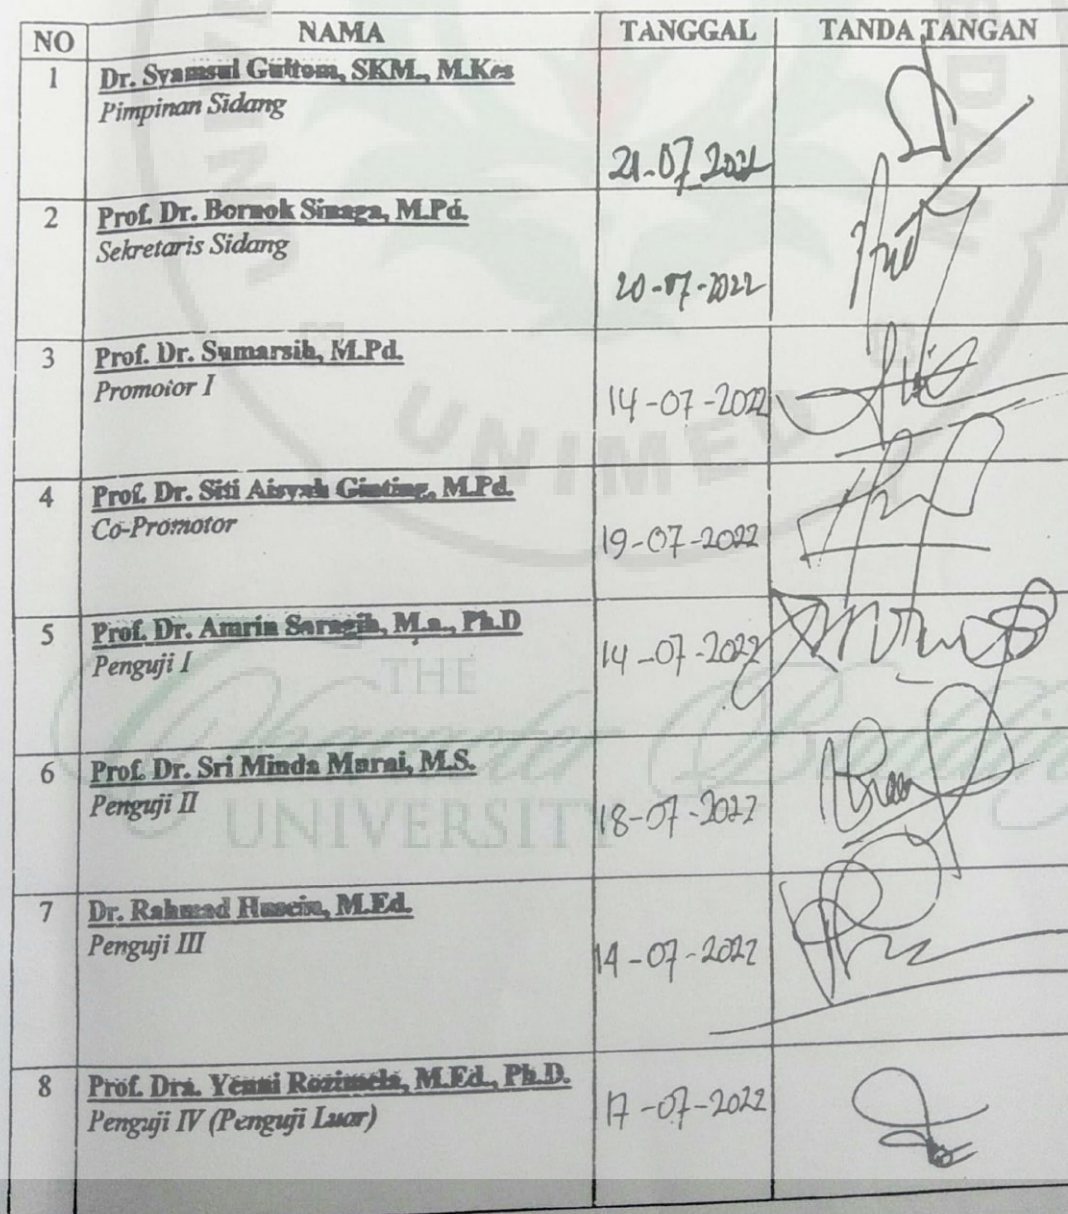 NO NAMA TANGGAL TANDA TANGAN
1 Dr. Syamsul Gultom, SKM., M.Kes
Pimpinan Sidang
21-07-2022
2 Prof. Dr. Bornok Sinaga, M.Pd.
Sekretaris Sidang
20-07-2022
3 Prof. Dr. Sumarsih, M.Pd.
Promotor I
14-07-2022
4 Prof. Dr. Siti Aisyah Ginting, M.Pd.
Co-Promotor
19-07-2022
5 Prof. Dr. Amrin Saragih, M.a., Ph.D
Penguji I
14-07-2022
THE
Character Building
UNIVERSITY
6 Prof. Dr. Sri Minda Murni, M.S.
Penguji II
18-07-2022
7 Dr. Rahmad Husein, M.Ed.
Penguji III
14-07-2022
8 Prof. Dra. Yenni Rozimela, M.Ed., Ph.D.
Penguji IV (Penguji Luar)
17-07-2022
UNIMED